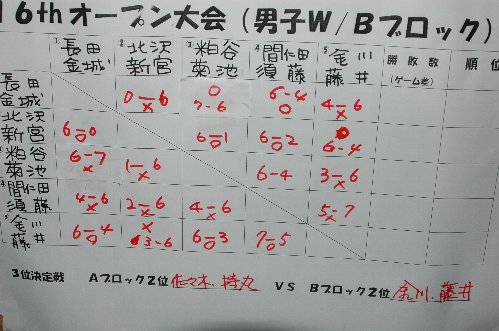 16thオープン大会(男子W/Bブロック)
① 長田 金城 ② 北沢 新宮 ③ 粕谷 菊池 ④ 間仁田 須藤 ⑤ 金川 藤井 勝敗数 (ゲーム差) 順位
長田 金城 0-6 × 0 7-6 6-4 0 4-6 ×
北沢 新宮 6-0 6-1 6-2 6-4
粕谷 菊池 6-7 × 1-6 6-4 3-6 ×
間仁田 須藤 4-6 × 2-6 × 4-6 × 5-7 ×
金川 藤井 6-4 × 3-6 6-3 7-5
3位決定戦 Aブロック2位 佐々木・持丸 VS Bブロック2位 金川・藤井